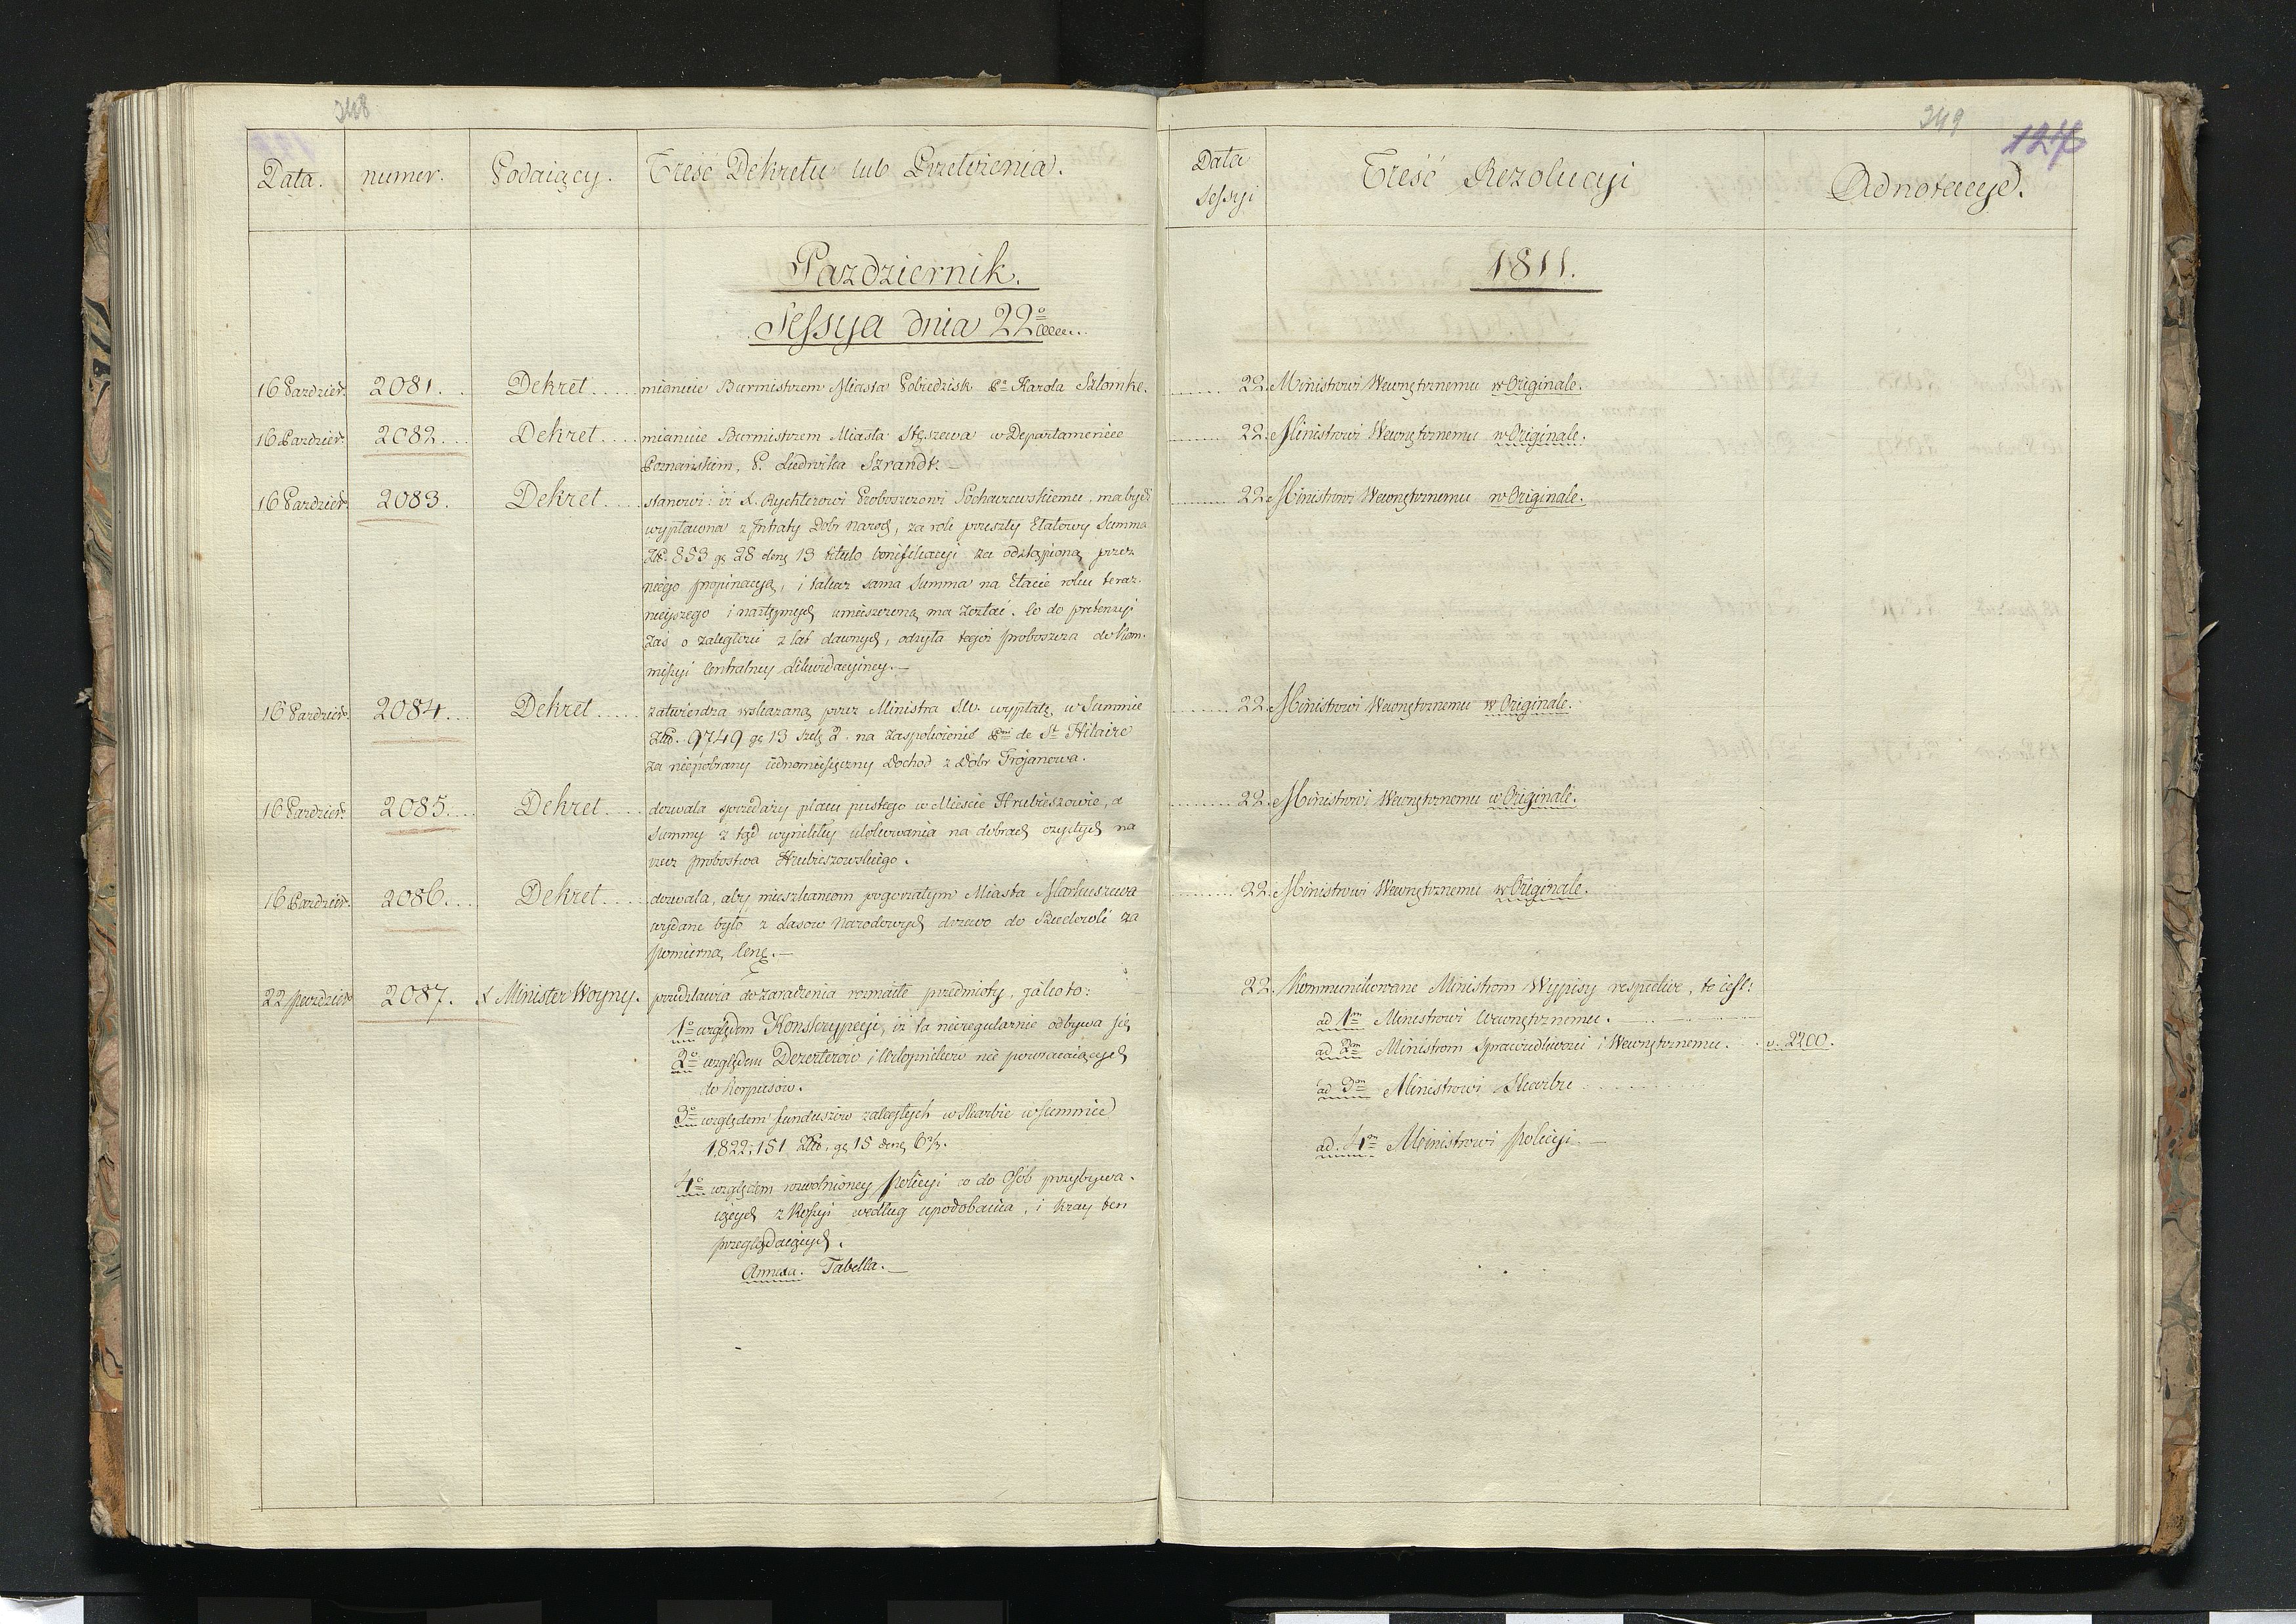 348
Data.
numer.
Podaiący.
Treść Dekretu lub Przełożenia.
Pazdziernik.
Sessya dnia 22º
16 Pazdzier.
2081.
Dekret
mianuie Burmistrzem Miasta Pobiedzisk Pª Karola Szlomke.
16 Pazdzier.
2082.
Dekret
mianuie Burmistrzem Miasta Stęszewa w Departamencie
Poznańskim, P. Ludwika Szrandt.
16 Pazdzier.
2083.
Dekret
stanowi: iż X. Rychterowi Proboszczowi Sochaczewskiemu, ma bydź
wypłacona z Intraty Dobr Narod, za rok przeszły Etatowy Summa
Złp. 853 gr 28 den 13 titulo bonifikacyi za odstąpioną przez
niego propinacyą, i takaz sama Summa na Etacie roku teraz-
nieyszego i następnych umieszczoną ma zostać. Co do pretensyi
zaś o zaległości z lat dawnych, odsyła tegoż proboszcza do Kom-
missyi Centralney Likwidacyiney.—
16 Pazdzier.
2084.
Dekret
zatwierdza wskazaną przez Ministra SW. wypłatę w Summie
Złp. 9749 gr 13 szel 2. na zaspokoienie Pni de St Hilaire
za niepobrany iednomiesięczny dochod z Dobr Trojanowa.
16 Pazdzier.
2085.
Dekret
dozwala sprzedaży placu pustego w Mieście Hrubieszowie, a
Summy z tąd wynikłey ulokowania na dobrach czystych na
rzecz probostwa Hrubieszowskiego.
16 Pazdzier.
2086.
Dekret
dozwala, aby mieszkancom pogorzałym Miasta Markuszewa
wydane było z Lasow Narodowych drzewo do Budowli za
pomierną Cenę.—
22 pazdzier
2087.
X Minister Woyny.
przedstawia do zaradzenia rozmaite przedmioty, jako to:
1º względem Konskrypcyi, iż ta nieregularnie odbywa się
2º względem Dezerterow i Urlopnikow nie powracaiących
do Korpusow.
3º względem funduszow zaległych w Skarbie w Summie
1,822,151 Złp. gr 15 den 6⅔.
4º względem rozwolnioney policyi co do Osób przybywa-
iących z Rossyi według upodobania, i Kray ten
przeglądaiących.
Annexa. Tabella.—
349
127
Data
Sessyi
Treść Rezolucyi
Adnotacye.
1811.
22. Ministrowi Wewnętrznemu w Originale.
22. Ministrowi Wewnętrznemu w Originale.
22. Ministrowi Wewnętrznemu w Originale.
22. Ministrowi Wewnętrznemu w Originale.
22. Ministrowi Wewnętrznemu w Originale.
22. Ministrowi Wewnętrznemu w Originale.
22. Kommunikowane Ministrom Wypisy respective, to iest:
ad 1m Ministrowi Wewnętrznemu.
ad 2m Ministrom Sprawiedliwości i Wewnętrznemu.
v. 2200.
ad 3m Ministrowi Skarbu
ad. 4m Ministrowi Policyi.—